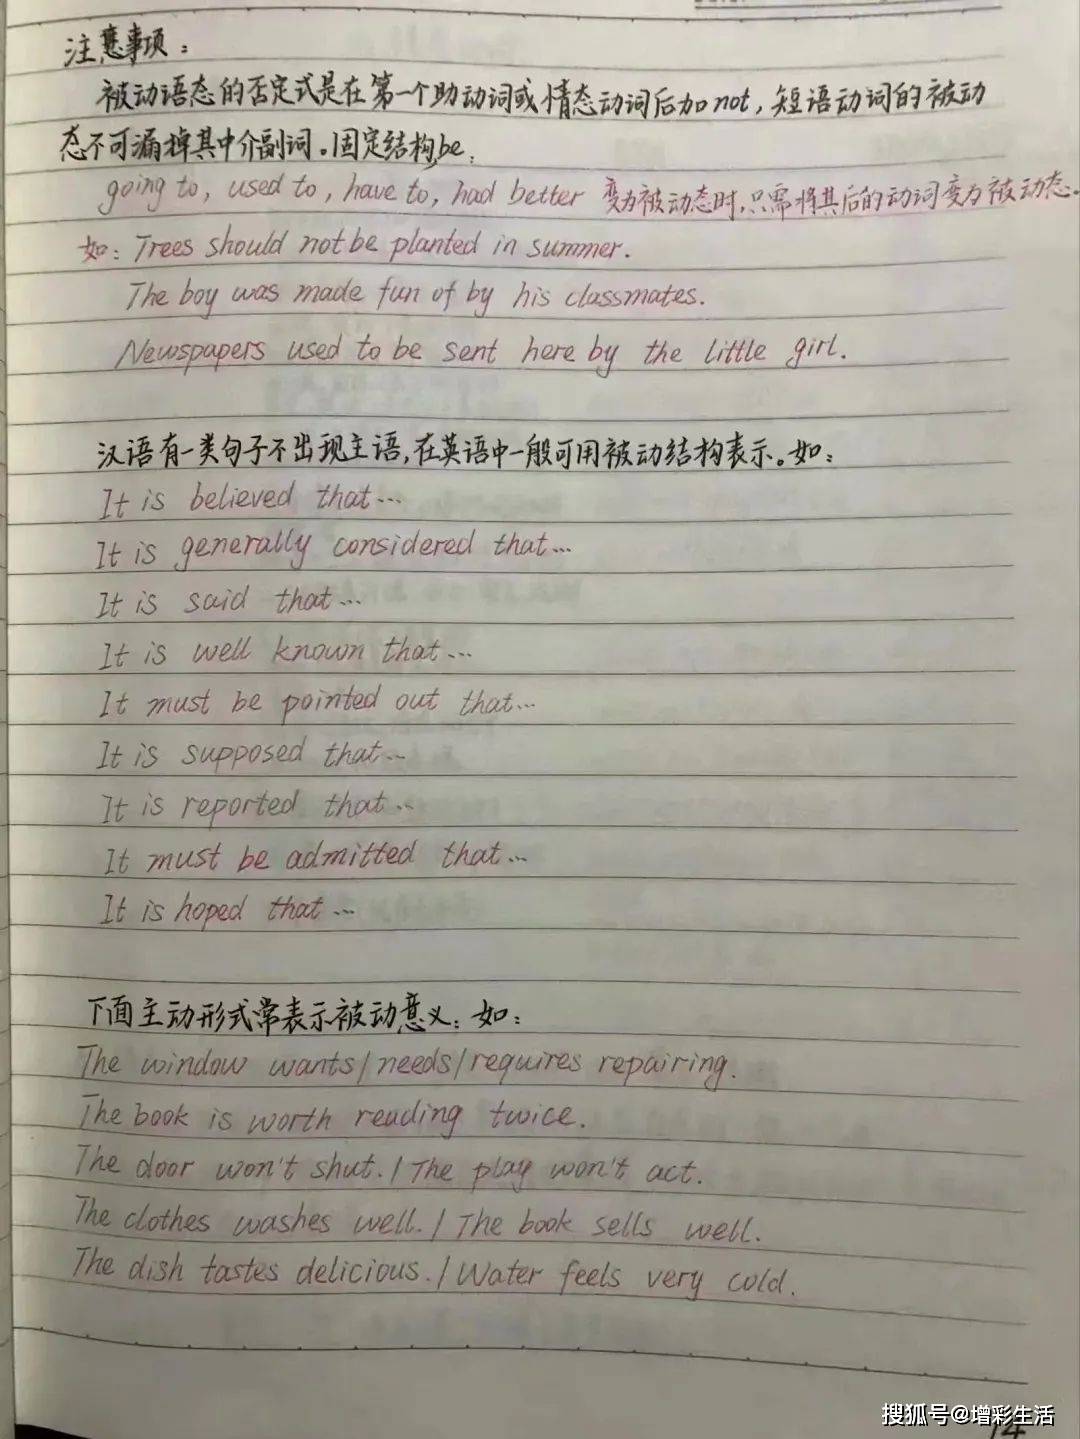 注意事项：
被动语态的否定式是在第一个助动词或情态动词后加not，短语动词的被动
态不可漏掉其中介副词。固定结构be
going to, used to, have to, had better 变为被动态时，只需将其后的动词变为被动态.
如：Trees should not be planted in summer.
The boy was made fun of by his classmates.
Newspapers used to be sent here by the little girl.
汉语有一类句子不出现主语，在英语中一般可用被动结构表示。如：
It is believed that…
It is generally considered that…
It is said that…
It is well known that…
It must be pointed out that…
It is supposed that…
It is reported that…
It must be admitted that…
It is hoped that…
下面主动形式常表示被动意义：如：
The window wants/needs/requires repairing.
The book is worth reading twice.
The door won't shut./The play won't act.
The clothes washes well./The book sells well.
The dish tastes delicious./Water feels very cold.
搜狐号@增彩生活